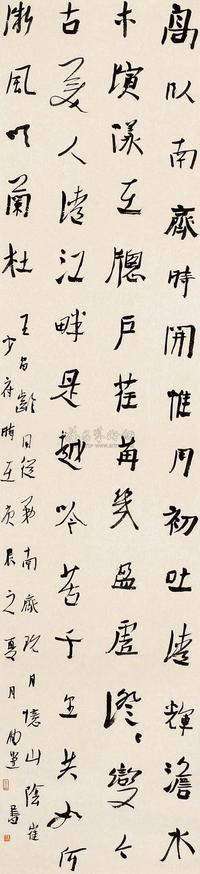 高臥南齋時開惟月初吐清輝澹水
木演漾在牕戶荏苒幾盈虛澄〻變今
古美人清江畔是越吟苦千里共如何
風吹蘭杜
王昌齡同從弟南齋玩月憶山陰崔
少府時在庚辰之夏月